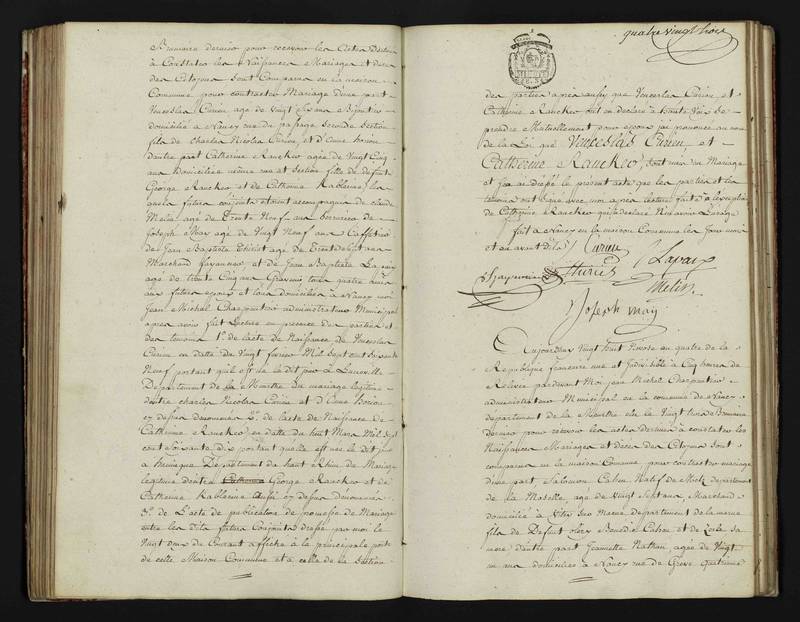 Brumaire dernier pour recevoir les actes Destinés
à Constater les Naissances Mariages et décès
des Citoyens sont Comparus en la maison
Commune pour contracter Mariage d'une part
Venceslas Curien agé de vingt ans Bijoutier
domicilié à Nancy rue du passage seconde section
fils de charles Nicolas Curien et d'Anne
d'autre part Catherine Rauckeo agée de Vingt Cinq
ans Domiciliée même rue et Section fille de défunt
George Rauckeo et de Catherine Rablerine les
quels futurs conjoints étoient accompagnés de claude
Melin agé de Trente Neuf ans
Joseph May agé de Vingt Neuf ans Caffetier
de Jean Baptiste agé de Trente ans
Marchand fayancier et de Jean Baptiste Lapaix
agé de trente Cinq ans Graveur tous quatre amis
aux futurs époux et tous domiciliés à Nancy moi
Jean Michel Charpentier administrateur Municipal
apres avoir fait Lecture en presence des parties et
des temoins 1º de l'acte de Naissance de Venceslas
Curien en datte du Vingt fevrier Mil Sept cent soixante
Neuf portant qu'il est né le dit jour à Luneville
Departement de la Meurthe du mariage legitime
d'entre charles Nicolas Curien et d'Anne
ey dessus denommés 2º de l'acte de Naissance de
Catherine Rauckeo en datte du huit Mars Mil Sept
cent Soixante dix portant quelle est née le dit jour
à Departement du haut Rhin du Mariage
legitime d'entre George Rauckeo et de
Catherine Rablerine ey dessus denommés
3º de L'acte de publication de promesse de Mariage
entre les dits futurs Conjoints dressé par moi le
Vingt deux du Courant affiché à la principale porte
de cette Maison Commune et à celle de la Section
quatre vingt trois
des parties apres aussy que Venceslas Curien et
Catherine Rauckeo ont eu declaré à haute Voix se
prendre Mutuellement pour epoux j'ai prononcé au nom
de la Loi que Venceslas Curien et
Catherine Rauckeo, sont unis en Mariage
et j'ai rédigé le present acte que les parties et les
temoins ont signé avec moi apres lecture faite à l'exception
de Catherine Rauckeo qui a declaré N'en avoir L'usage
fait à Nancy en la maison Commune les Jour mois
et an avant dits Curien
Charpentier Lapaix
Melin
Joseph may
Aujourdhuy Vingt huit Nivose au quatre de la
Republique francaise une et Indivisible à Cinq heures de
Relevée pardevant Moi Jean Michel Charpentier
administrateur Municipal en la commune de Nancy
departement de la Meurthe élu le Vingt trois Brumaire
dernier pour recevoir les actes destinés à constater les
Naissances Mariages et Décès des Citoyens sont
comparus en la maison Commune pour contracter mariage
d'une part Salomon Cahen Natif de Metz departement
de la Moselle agé de Vingt Sept ans Marchand
domicilié à Vitry sur Marne departement de la marne
fils de Defunt Benoit Cahen et de sa
mere d'autre part Jeannette Nathan agée de Vingt
un ans domiciliée à Nancy rue de Greve quatrieme